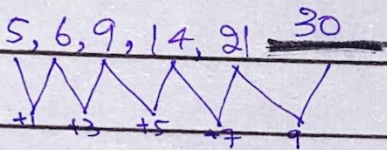 5, 6, 9, 14, 21 30
+1 +3 +5 +7 9